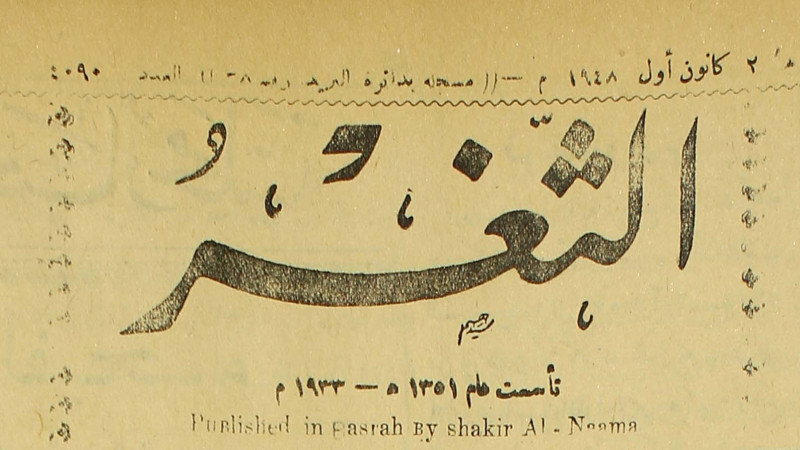 ٢ كانون أول ١٩٤٨ م — (( مسجله بدائرة البريد رقم ٨ـ )) العدد ٤٠٩٠
الثغر
تأسست عام ١٣٥١ ه — ١٩٣٣ م
Published in Basrah By shakir Al - Naama